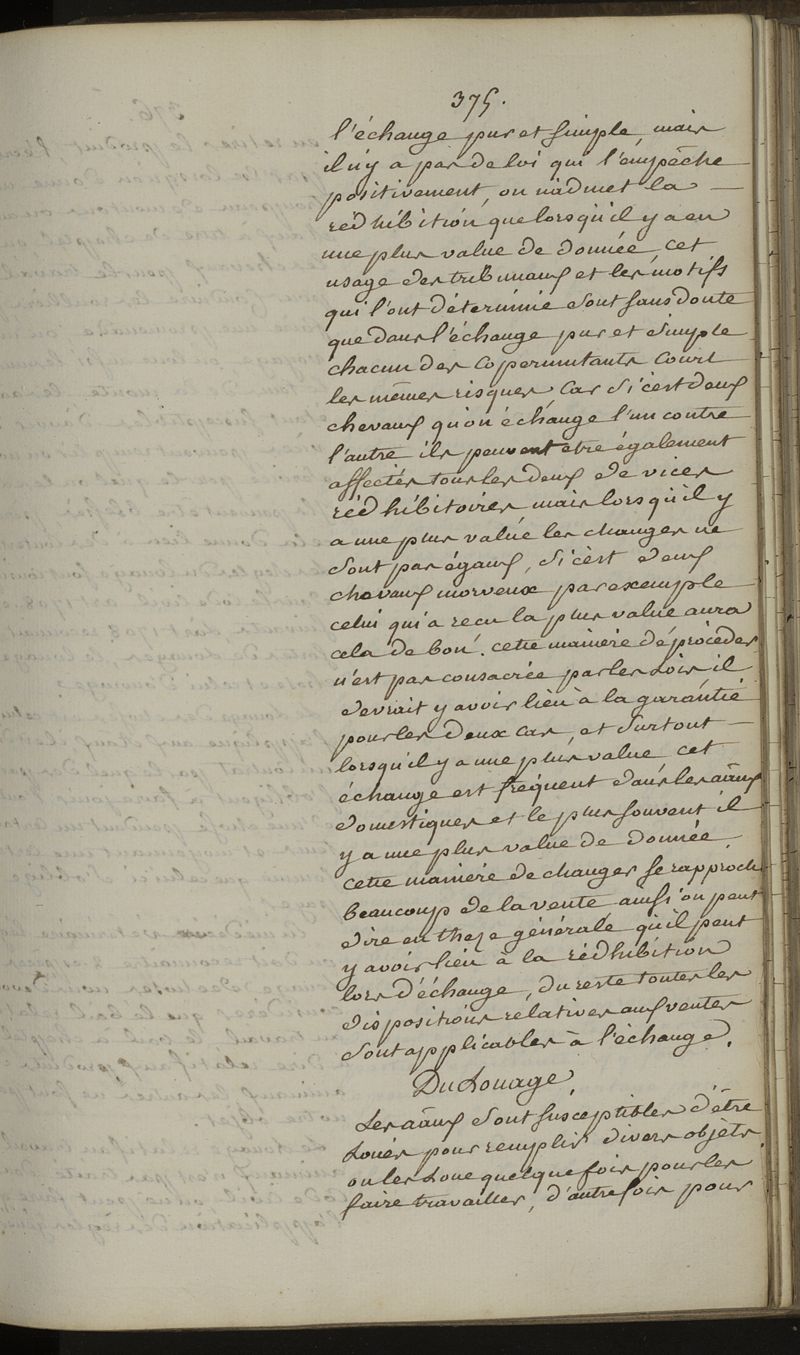 375.
l'échange pur et simple, mais
il n'y a pas de loi qui l'empêche
positivement, on n'admet la —
rédhibition que lorsqu'il y a eu
une plus value de donnée, cet
usage des tribunaux et les motifs
qui l'ont déterminé sont sans doute
que dans l'échange pur et simple
chacun des copermutants court
les mêmes risques, car si c'est deux
chevaux qu'on échange l'un contre
l'autre ils peuvent être également
affectés tous les deux de vices
rédhibitoires mais lorsqu'il y
a une plus value les changes ne
sont pas égaux, si c'est deux
chevaux morveux par exemple
celui qui a recu la plus value aura
cela de bon. cette maniere de procéder
n'est pas consacrée par les Lois il
devrait y avoir lieu à la garantie
pour les deux cas, et surtout —
lorsqu'il y a une plus value, cet
échange est fréquent dans les aãux
domestiques et le plus souvent il
y a une plus value de donnée,
cette maniere de changer se rapproche
beaucoup de la vente aussi on peut
dire en these générale qu'il peut
y avoir lieu à la rédhibition
lors d'échange, du reste toutes les
dispositions relatives aux ventes
sont applicables à l'échange.
Du Louage.
Les aãux sont susceptibles d'être
Loués pour remplir divers objèts,
on les Loue quelque fois pour les
faire travailler, d'autre fois pour